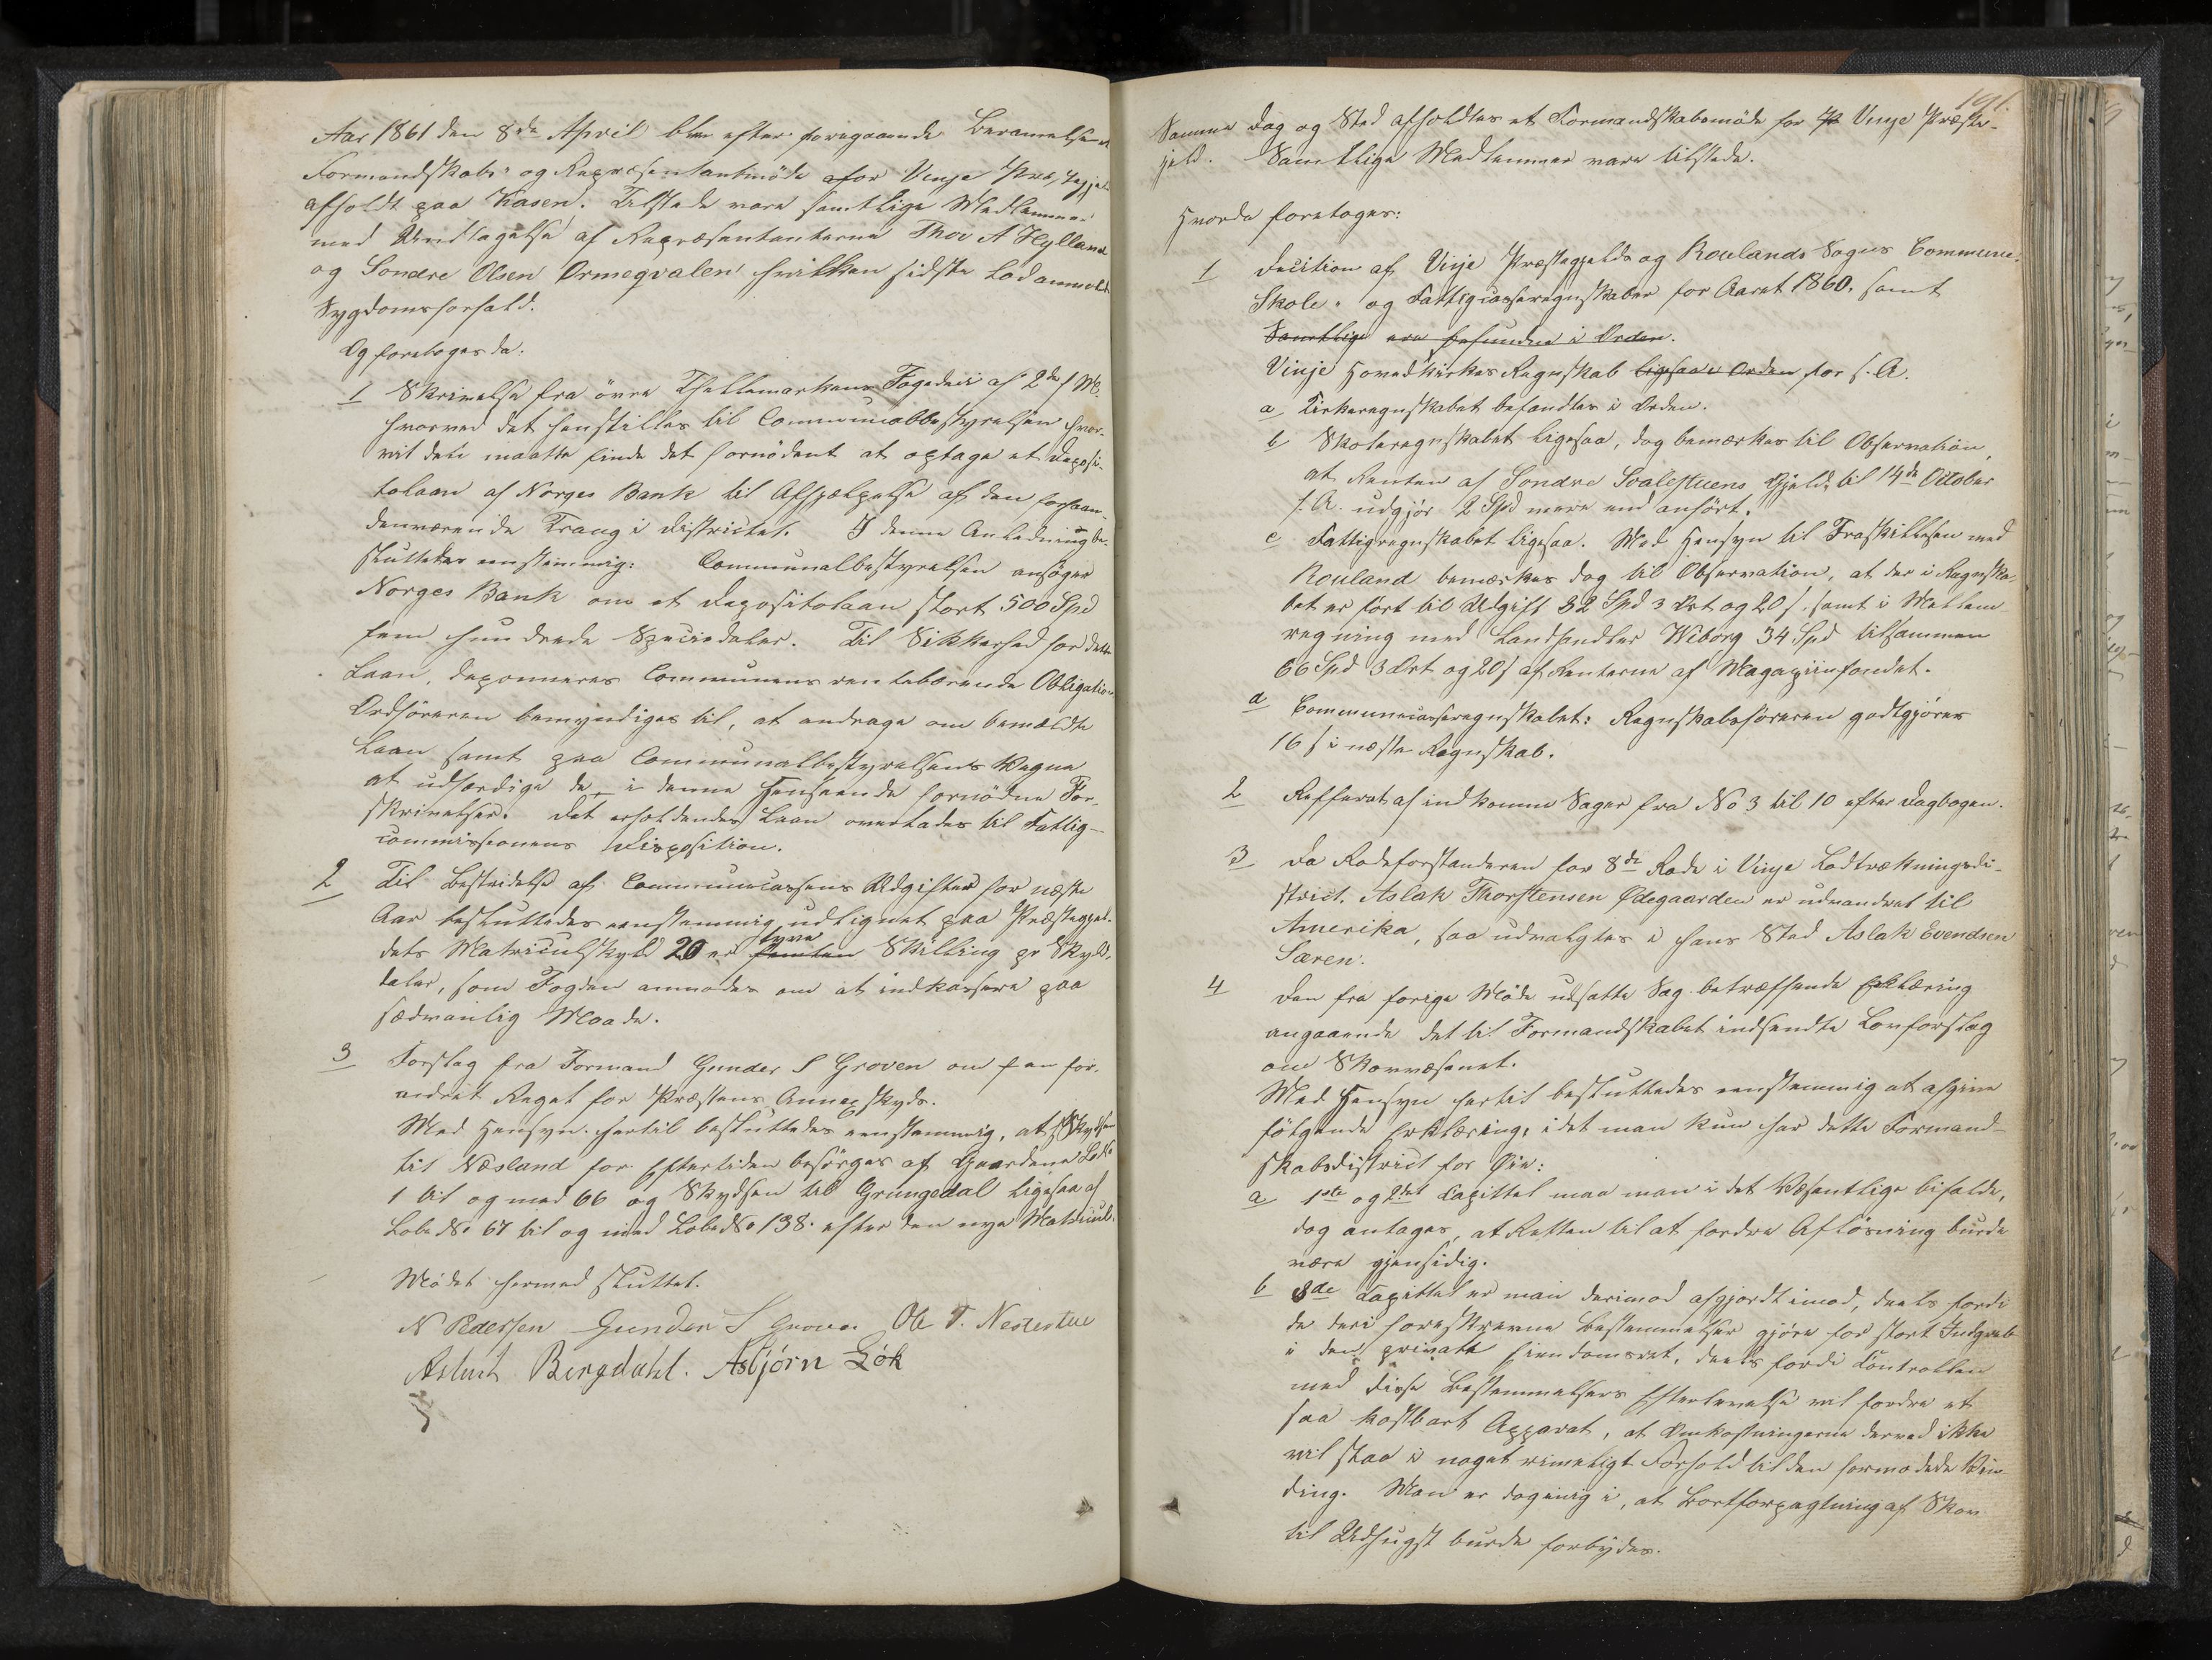 Aar 1861 den 8de April blev efter foregaaende Berammelse et
Formandskabs- og Repræsentantmöde afor Vinje Præstegjeld
afholdt paa Kasen. Tilstede vare samtlige Medlemmer
med Undtagelse af Repræsentanterne Thor A Hylland
og Sondre Olsen Ormegvalen hvilken sidste lod anmelde
Sygdomsforfald.
Og foretoges da:
1 Skrivelse fra övre Thellemarkens Fogderi af 2den f M.
hvorved det henstilles til Communalbestyrelsen hvor-
vidt det maatte finde det fornödent at optage et Deposi-
tolaan af Norges Bank til Afhjælpelse af den forhaan-
denværende Trang i Districtet. I denne Anledning be-
sluttedes eenstemmig: Communalbestyrelsen ansöger
Norges Bank om et Depositolaan stort 500 Spd
fem hundrede Speciedaler. Til Sikkerhed for dette
Laan, deponneres Communens rentebærende Obligation
Ordföreren bemyndiges til, at andrage om bemældte
Laan samt paa Communalbestyrelsens Vegne
at udfærdige de i denne Henseende fornödne For-
skrivelser. Det erholdendes Laan overlades til Fattig-
commissionens Disposition.
2 Til Bestridelse af Communecassens Udgifter for næste
Aar besluttedes eenstemmig udlignet paa Præstegjel-
tyve
dets Matriculskyld 20 er femten Skilling pr Skyld-
daler, som Fogden anmodes om at indkassere paa
sædvanlig Maade.
3 Forslag fra Formand Gunder S Groven om f en for-
andret Regel for Præstens Annexskyds.
Med Hensyn hertil besluttedes eenstemmig, at Skydsen
til Næsland for Eftertiden besörges af Gaardene LbNo
1 til og med 66 og Skydsen til Grungedal ligesaa af
LobeNo 67 til og med LobeNo 138 efter den nye Matricul.
Mödet hermed sluttet.
N Pedersen Gunder S Groven Ole T. Nestestue
Aslach Bergdahl. Asbjörn Lök
191.
Samme Dag og Sted afholdtes et Formandskabsmöde for Vinje Præste-
gjeld. Samtlige Medlemmer vare tilstede.
Hvorda foretoges:
1 Decition af Vinje Præstegjelds og Roulands Sogns Commune-
Skole- og Fattigcasseregnskaber for Aaret 1860. samt
Samtlige ere befundne i Orden.
Vinje Hovedkirkes Regnskab ligesaa i Orden for s. A.
a Kirkeregnskabet befandtes i Orden.
b Skoleregnskabet ligesaa, dog bemærkes til Observation,
at Renten af Sondre Soalestuens Gjeld, til 14de October
s. A. udgjör 2 Spd mere end anfört.
c Fattigregnskabet ligesaa. Med Hensyn til Fraskillelsen med
Rouland bemærkes dog til Observation, at der i Regnska-
bet er fört til Udgift 32 Spd 3 Ort og 20 s. samt i Mellem-
regning med Landhandler Wiborg 34 Spd tilsammen
66 Spd 3 Ort og 20 s af Renterne af Magaziinfondet.
d Communecasseregnskabet: Regnskabsföreren godtgjöres
16 s i næste Regnskab.
2 Refferat af indkomne Sager fra No 3 til 10 efter Dagbogen.
3 Da Rodeforstanderen for 8de Rode i Vinje Lodtrækningsdi-
strict, Aslak Thorstensen Ødegaarden er udvandret til
Amerika, saa udvalgtes i hans Sted Aslak Evendsen
Særen.
4 Den fra forige Möde udsatte Sag betræffende Erklæring
angaaende det til Formandskabet indsendte Lovforslag
om Skovvæsenet.
Med Hensyn hertil besluttedes eenstemmig at afgive
fölgende Erklæring, idet man kun har dette Formand-
skabsdistrict for Øie:
a 1ste og 2det Capittel maa man i det Væsentlige bifalde,
dog antages, at Retten til at fordre Aflösning burde
være gjensidig.
b 3de Capittel er man derimod afgjordt imod, deels fordi
de deri foreskrevne Bestemmelser gjöre for stort Indgreb
i den private Eiendomsret, deels fordi Controllen
med disse Bestemmelsers Efterlevelse vil fordre et
saa kostbart Apparat, at Omkostningerne derved ikke
vil staa i noget rimeligt Forhold til den formodede Vin-
ding. Man er dog enig i, at Bortforpagtning af Skov
til Udhugst burde forbydes.